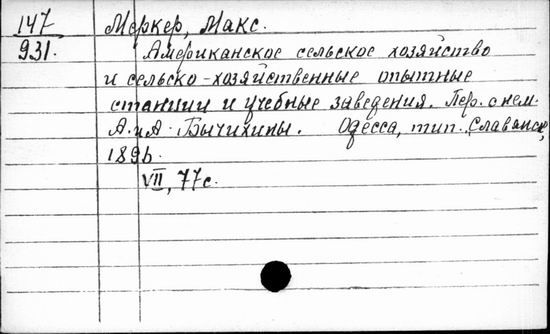 147 Меркер, Макс.
931. Американское сельское хозяйство
и сельско-хозяйственные опытные
станции и учебные заведения. Пер. с нем.
А. и А. Бычихины. Одесса, тип. Славянск,
189
VII, 77 с.